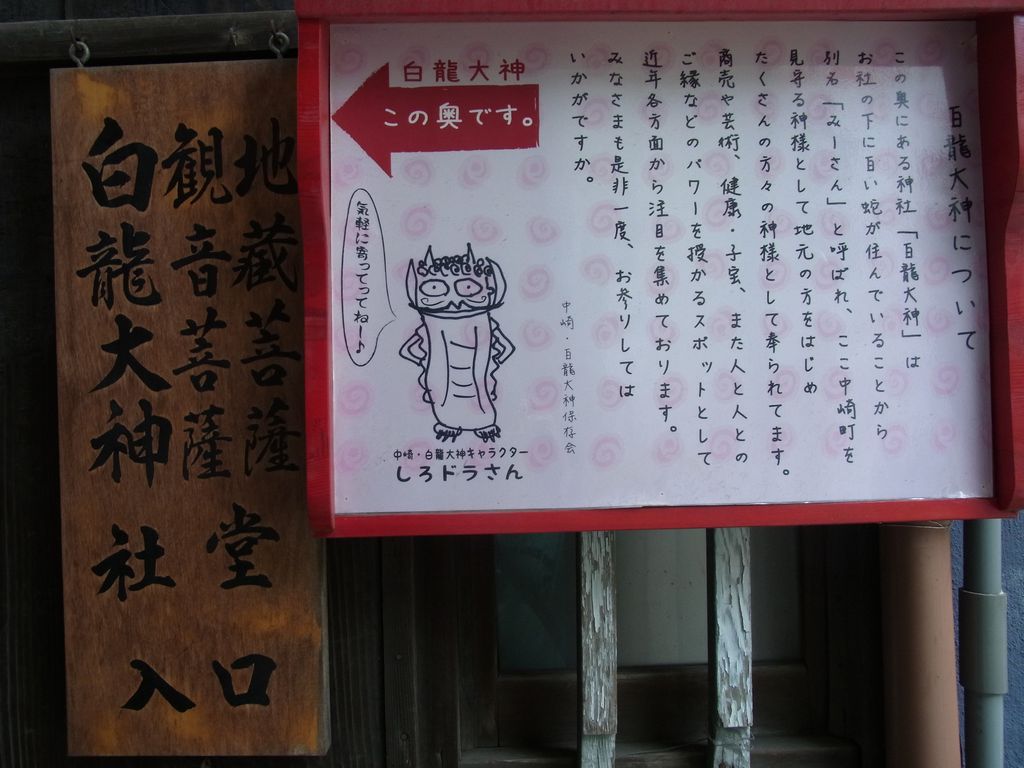 地藏菩薩
観音菩薩
堂
白龍大神社
入口
白龍大神について
この奥にある神社「白龍大神」は
お社の下に白い蛇が住んでいることから
別名「みーさん」と呼ばれ、ここ中崎町を
見守る神様として地元の方をはじめ
たくさんの方々の神様として奉られてます。
商売や芸術、健康・子宝、また人と人との
ご縁などのパワーを授かるスポットとして
近年各方面から注目を集めております。
みなさまも是非一度、お参りしては
いかがですか。
中崎・白龍大神保存会
白龍大神
この奥です。
気軽に寄ってってねー♪
中崎・白龍大神キャラクター
しろドラさん